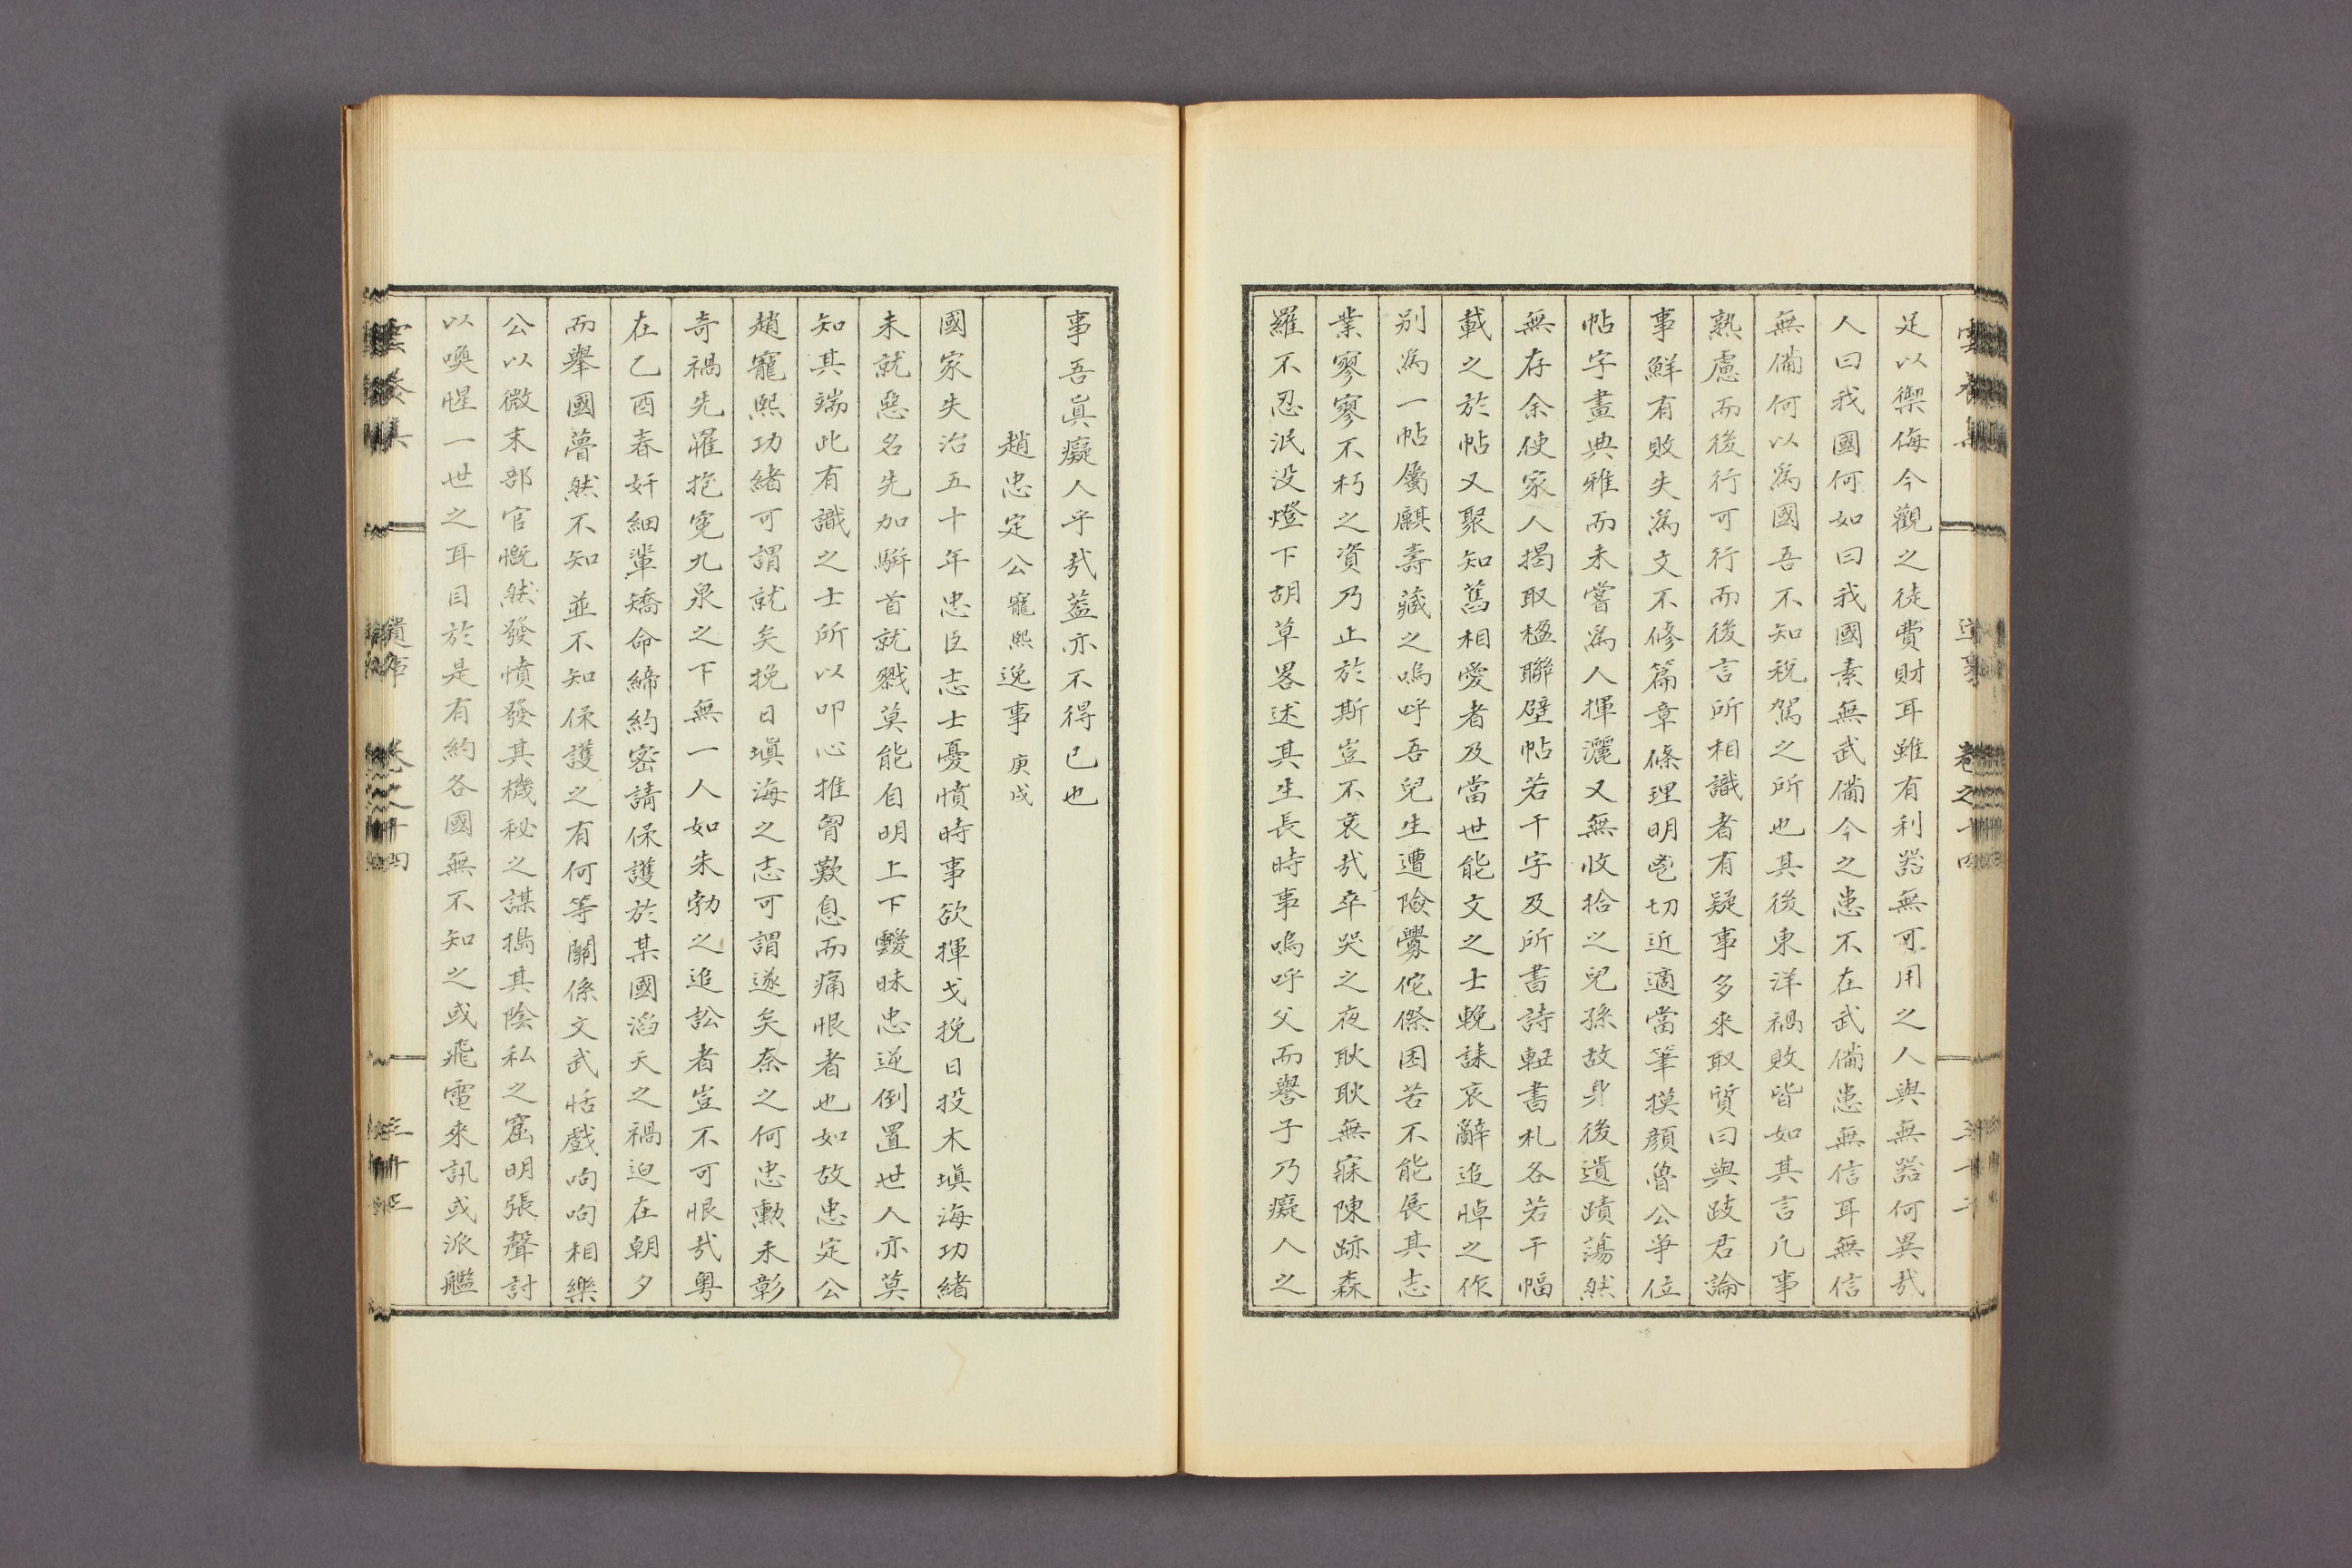 足以禦侮今觀之徒費財耳雖有利器無可用之人與無器何異哉
人曰我國何如曰我國素無武備今之患不在武備患無信耳無信
無備何以爲國吾不知稅駕之所也其後東洋禍敗皆如其言凡事
熟慮而後行可行而後言所相識者有疑事多來取質曰與跂君論
事鮮有敗失爲文不修篇章條理明鬯切近適當筆摸顔魯公爭位
帖字畫典雅而未嘗爲人揮灑又無收拾之兒孫故身後遺蹟蕩然
無存余使家人揭取楹聯壁帖若干字及所書詩軸書札各若干幅
載之於帖又聚知舊相愛者及當世能文之士輓誄哀辭追悼之作
別爲一帖屬麒壽藏之嗚呼吾兒生遭險釁侘傺困苦不能展其志
業寥寥不朽之資乃止於斯豈不哀哉卒哭之夜耿耿無寐陳跡森
羅不忍泯没燈下胡草畧述其生長時事嗚呼父而譽子乃癡人之
事吾眞癡人乎哉蓋亦不得已也
趙忠定公寵熙逸事庚戌
國家失治五十年忠臣志士憂憤時事欲揮戈挽日投木塡海功緖
未就惡名先加騈首就戮莫能自明上下靉昧忠逆倒置世人亦莫
知其端此有識之士所以叩心推胷歎息而痛恨者也如故忠定公
趙寵熙功緖可謂就矣挽日塡海之志可謂遂矣奈之何忠勳未彰
奇禍先罹抱寃九泉之下無一人如朱勃之追訟者豈不可恨哉粤
在乙酉春奸細輩矯命締約密請保護於某國滔天之禍迫在朝夕
而擧國瞢然不知並不知保護之有何等關係文武恬戲呴呴相樂
公以微末部官慨然發憤發其機秘之謀搗其陰私之窟明張聲討
以喚惺一世之耳目於是有約各國無不知之或飛電來訊或派艦
雲養集
卷之十四